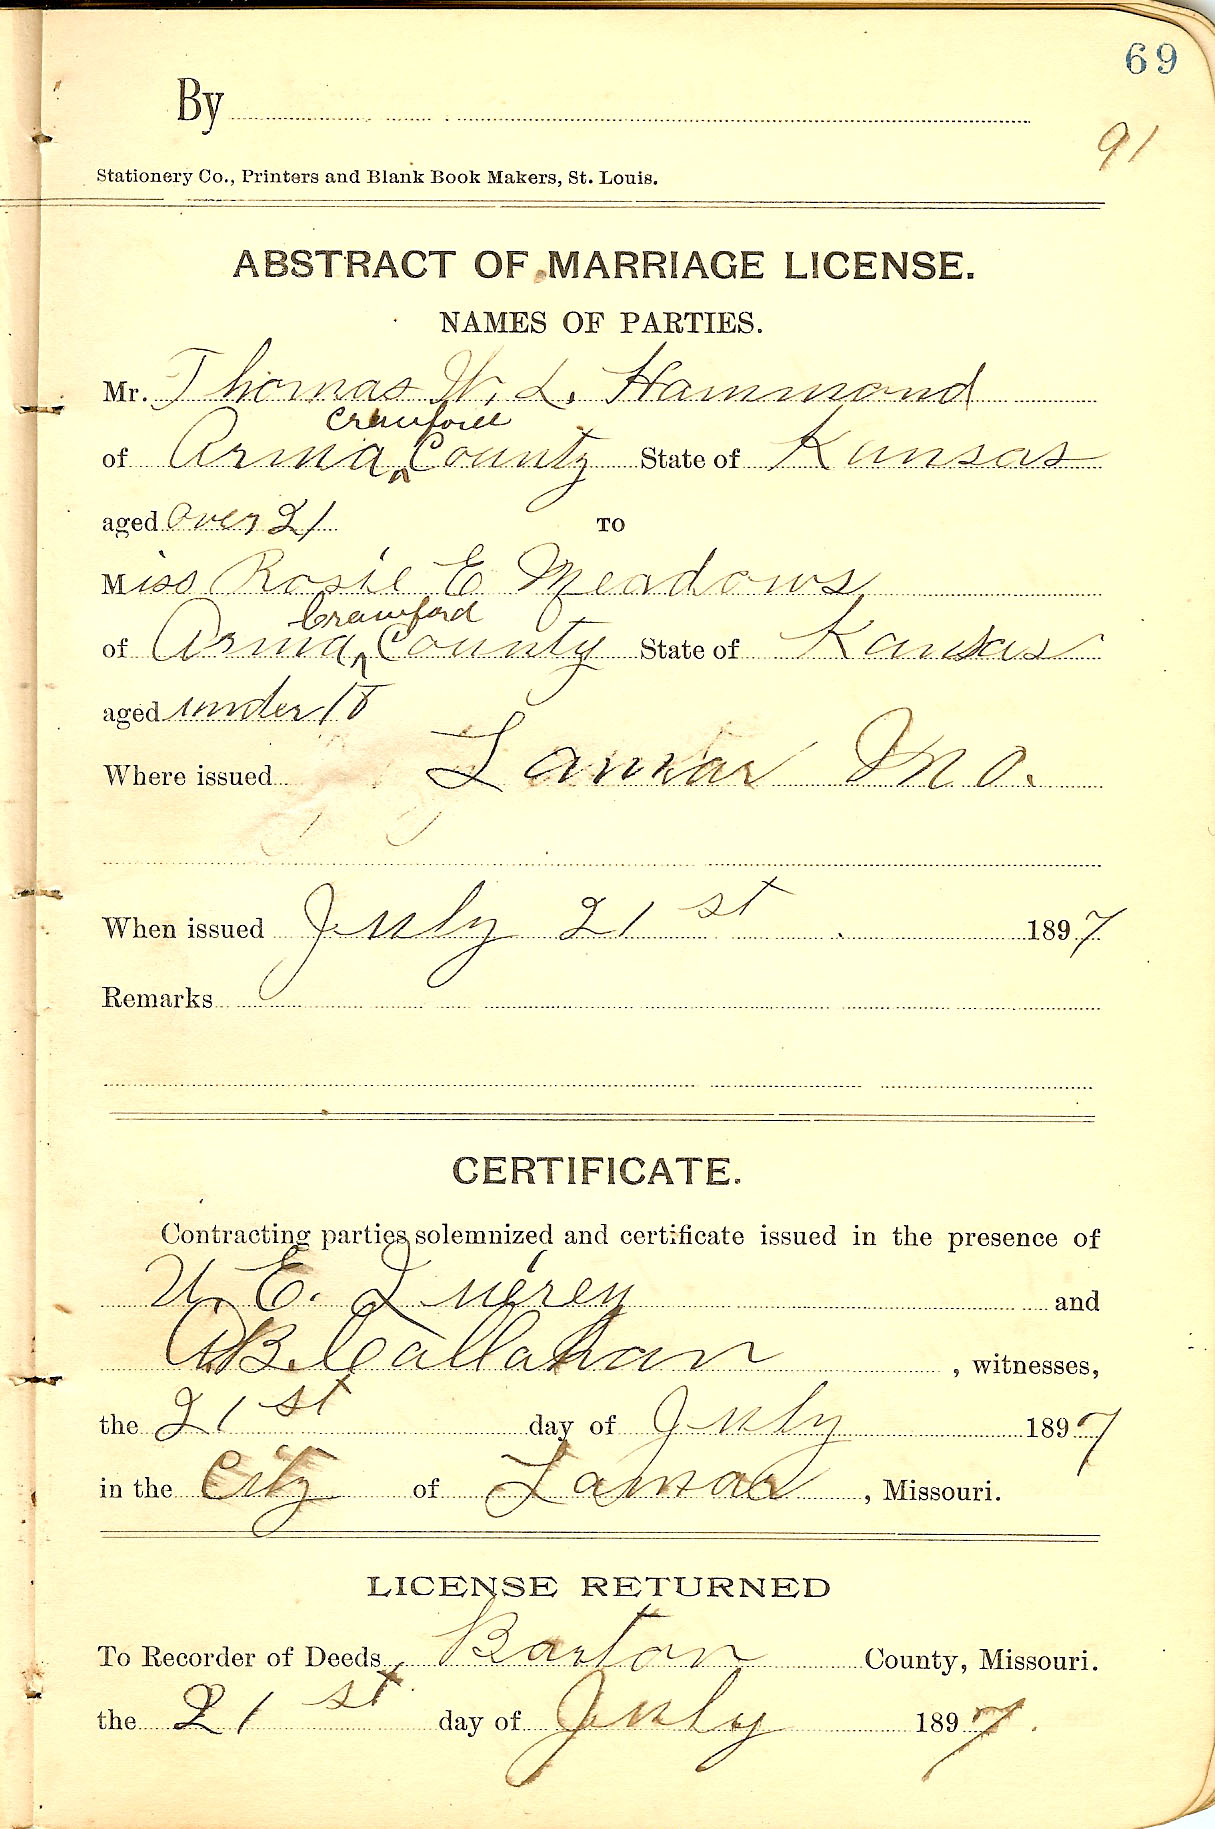 69
By
91
Stationery Co., Printers and Blank Book Makers, St. Louis.
ABSTRACT OF MARRIAGE LICENSE.
NAMES OF PARTIES.
Mr. Thomas W. L. Hammond
Crawford
of Arma ^ County State of Kansas
aged over 21 TO
Miss Rosie E Meadows
Crawford
of Arma ^ County State of Kansas
aged under 18
Where issued Lamar Mo.
When issued July 21st 1897
Remarks
CERTIFICATE.
Contracting parties solemnized and certificate issued in the presence of
E. and
B. Callahan , witnesses,
the 21st day of July 1897
in the City of Lamar , Missouri.
LICENSE RETURNED
To Recorder of Deeds, Barton County, Missouri.
the 21st day of July 1897.